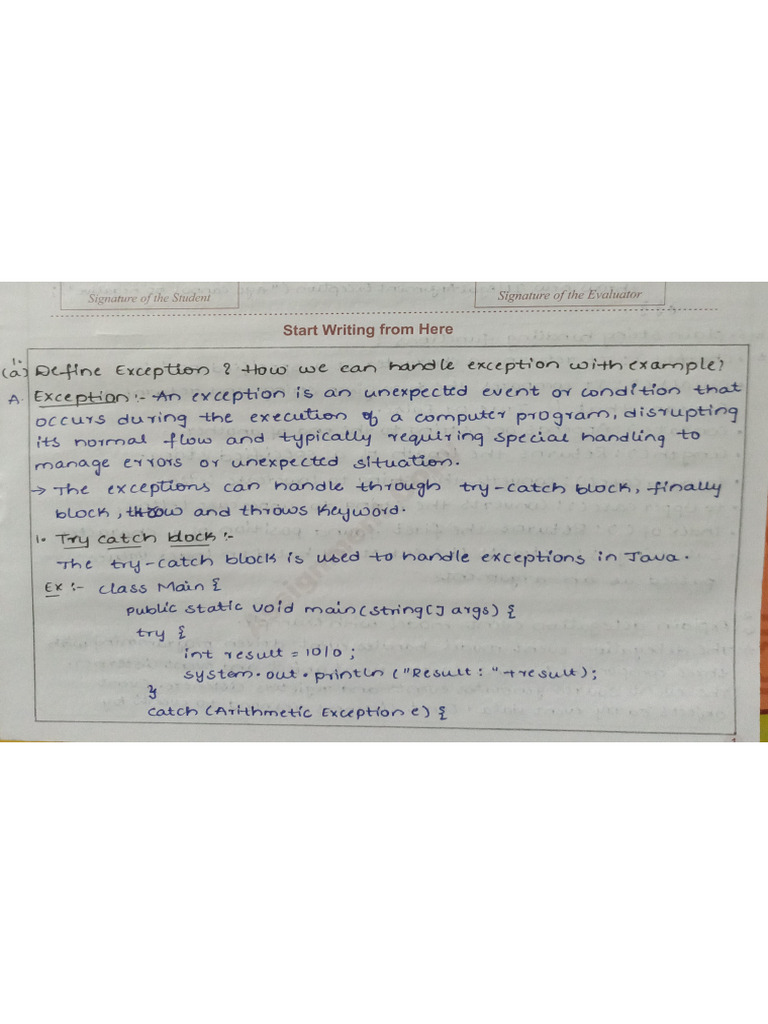 Signature of the Student
Signature of the Evaluator
Start Writing from Here
1.
(a) Define Exception? How we can handle exception with example?
A. Exception :- An exception is an unexpected event or condition that
occurs during the execution of a computer program, disrupting
its normal flow and typically requiring special handling to
manage errors or unexpected situation.
→ The exceptions can handle through try-catch block, finally
block, throw and throws keyword.
1. Try catch block :-
The try-catch block is used to handle exceptions in Java.
Ex :- class Main {
public static void main(string[] args) {
try {
int result = 10/0;
system.out.println ("Result: "+result);
}
catch (Arithmetic Exception e) {